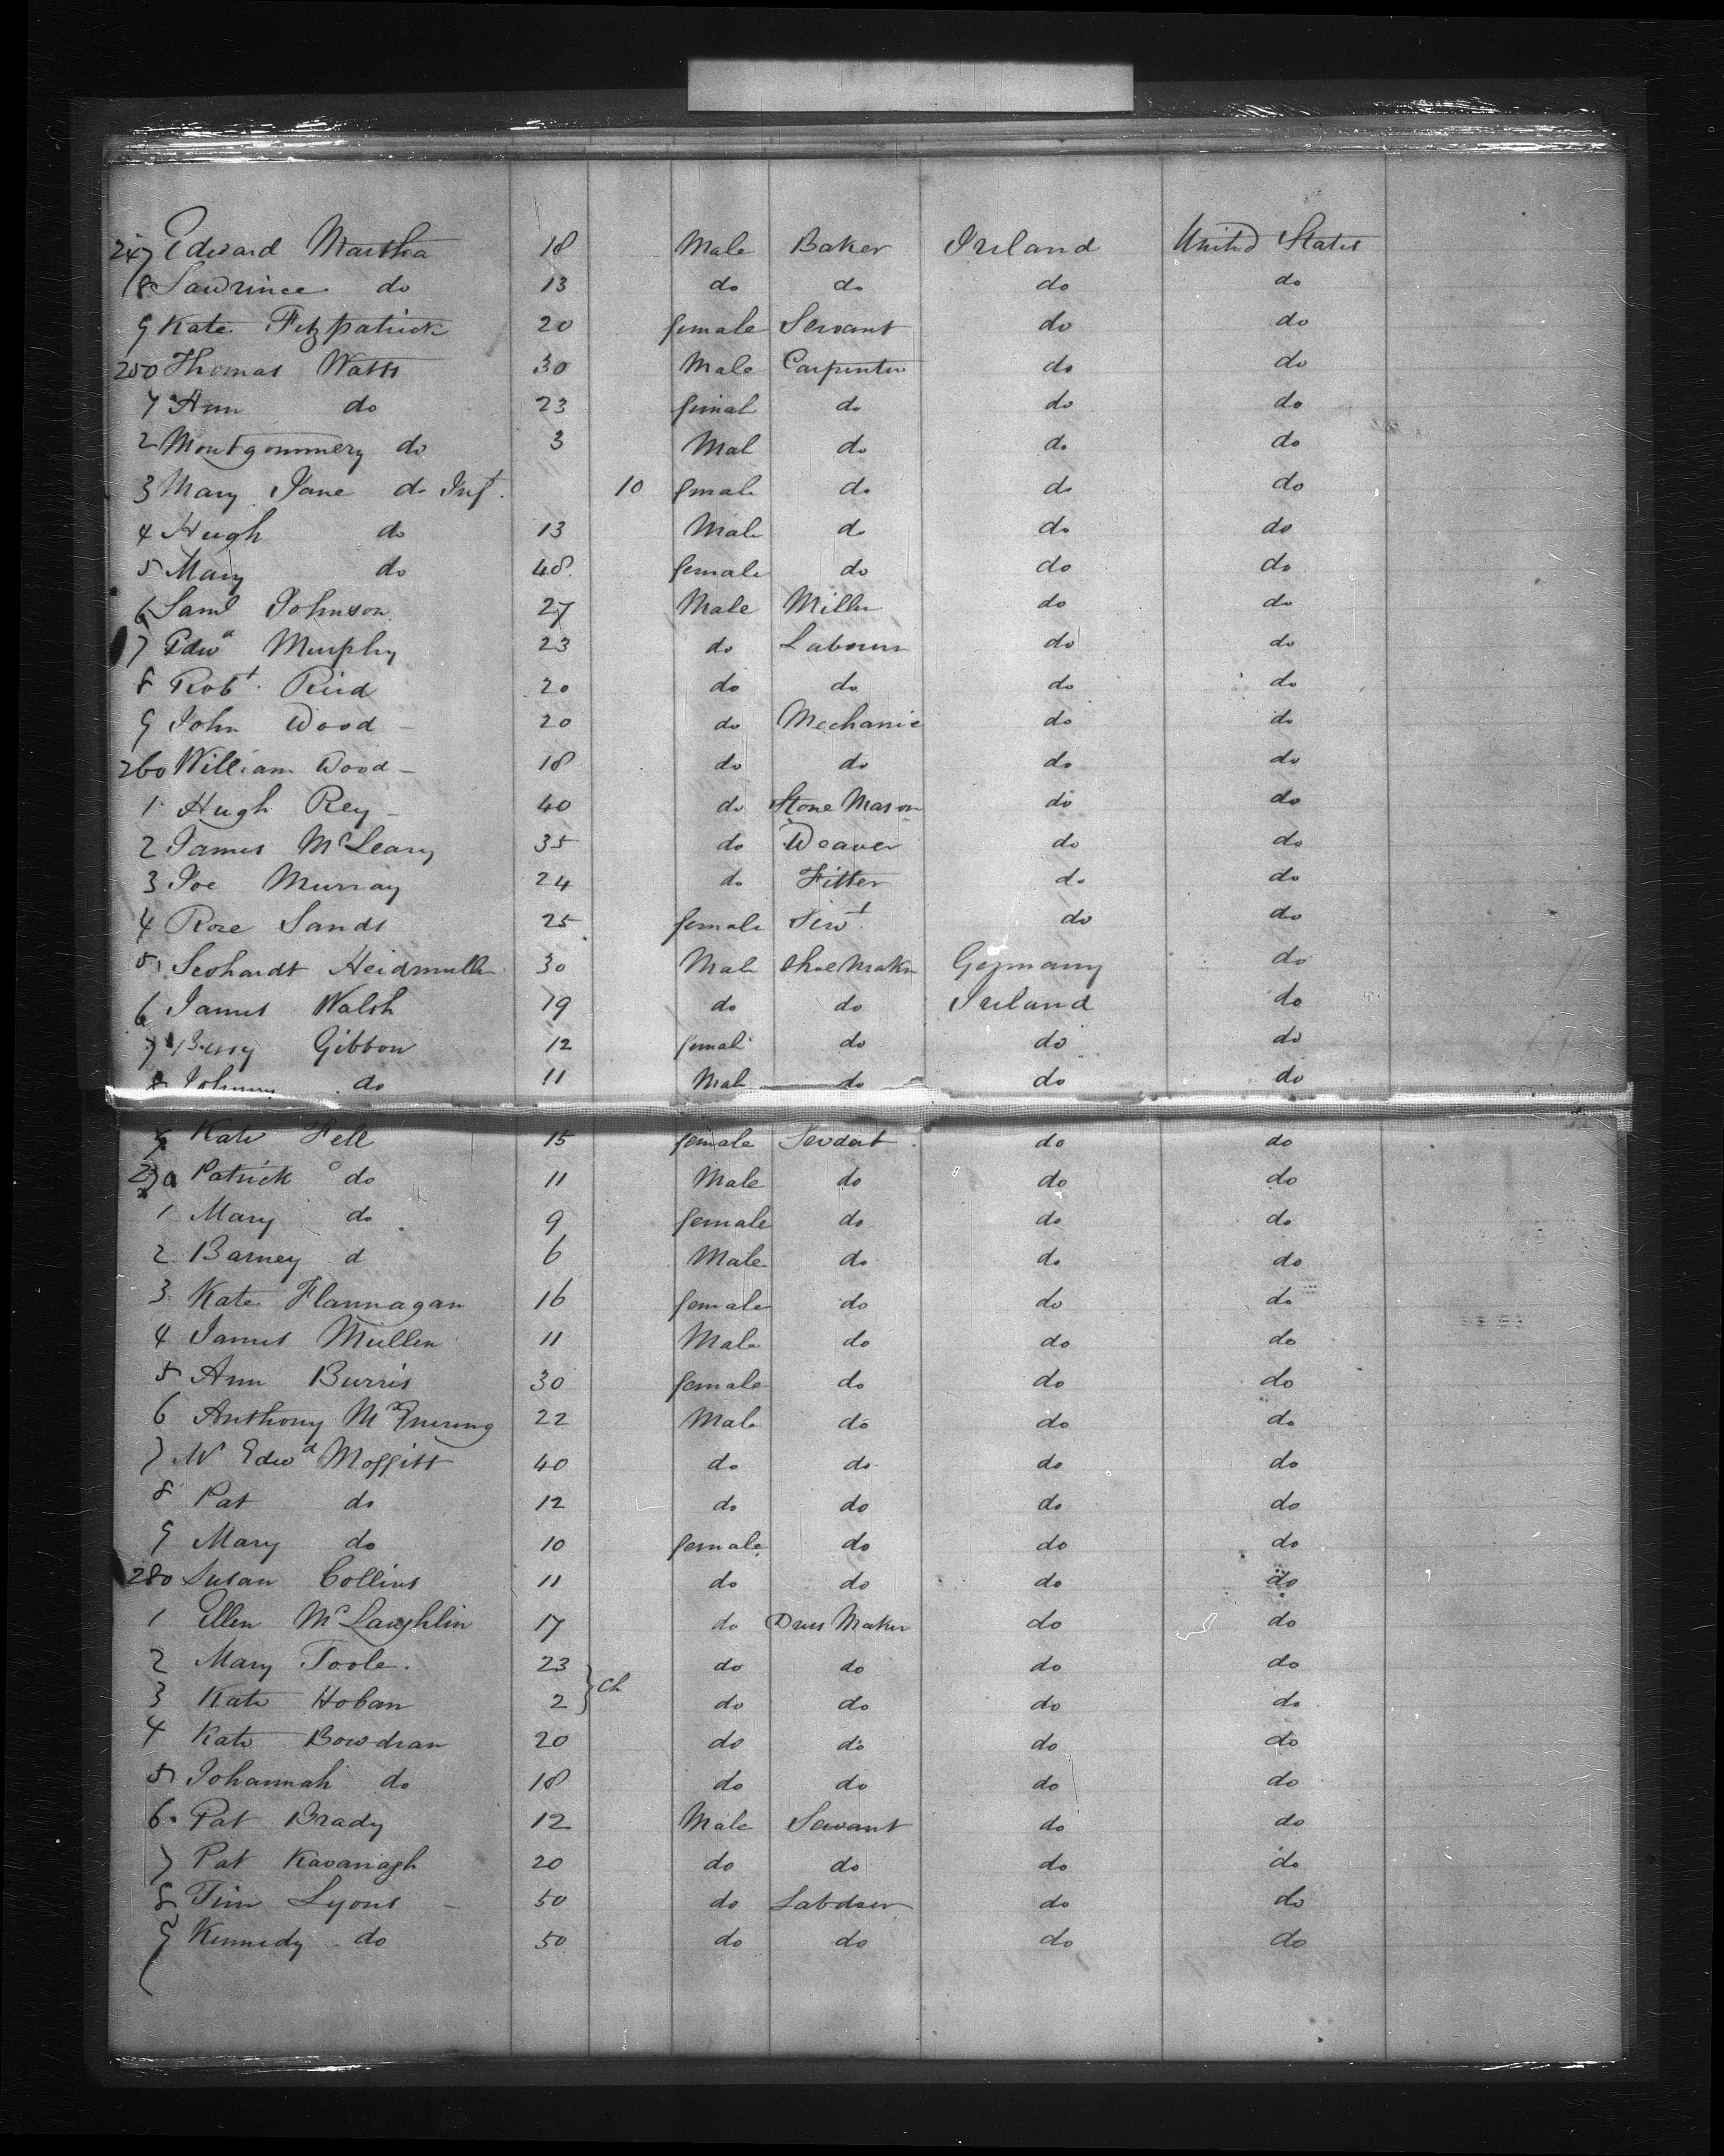 247 Edward Martha 18 Male Baker Ireland United States
8 Lawrince do 13 do do do do
9 Kate Fitzpatrick 20 female Servant do do
250 Thomas Watts 30 Male Carpenter do do
1 Ann do 23 femal do do do
2 Montgommery do 3 Mal do do do
3 Mary Jane do Inft. 10 female do do do
4 Hugh do 13 Male do do do
5 Mary do 48 female do do do
6 Saml Johnson 27 Male Miller do do
7 Edwd Murphy 23 do Labourer do do
8 Robt. Reid 20 do do do do
9 John Wood 20 do Mechanic do do
260 William Wood 18 do do do do
1 Hugh Rey 40 do Stone Mason do do
2 James McLeary 35 do Weaver do do
3 Joe Murray 24 do Fitter do do
4 Rose Sands 25 female Servt do do
5 30 Male Shoe Maker Germany do
6 James Walsh 19 do do Ireland do
7 Bessy Gibbon 12 female do do do
8 Johnny do 11 Male do do do
9 Kate Fell 15 female Servant do do
270 Patrick do 11 Male do do do
1 Mary do 9 female do do do
2 Barney d 6 Male do do do
3 Kate Flannagan 16 female do do do
4 James Mullen 11 Male do do do
5 Ann Burris 30 female do do do
6 Anthony 22 Male do do do
7 Mr Edwd Moffitt 40 do do do do
8 Pat do 12 do do do do
9 Mary do 10 female do do do
280 Susan Collins 11 do do do do
1 Ellen McLaughlin 17 do Dress Maker do do
2 Mary Toole. 23 do do do do
3 Kate Hoban 2 } Ch do do do do
4 Kate Bowdran 20 do do do do
5 Johannah do 18 do do do do
6 Pat Brady 12 Male Servant do do
7 Pat Kavanagh 20 do do do do
8 Tim Lyons 50 do Labourer do do
9 Kennedy do 50 do do do do